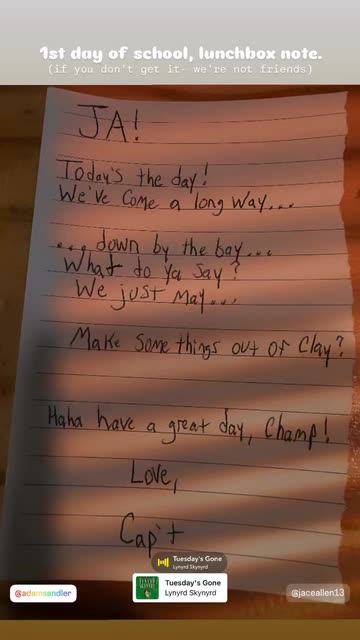 1st day of school, lunchbox note.
(if you don't get it- we're not friends)
JA!
Today's the day!
We've come a long way...
... down by the bay...
What do ya say?
We just may...
Make some things out of Clay?
Haha have a great day, Champ!
Love,
Cap't
Tuesday's Gone
Lynyrd Skynyrd
Tuesday's Gone
Lynyrd Skynyrd
@adamsandler
@jaceallen13